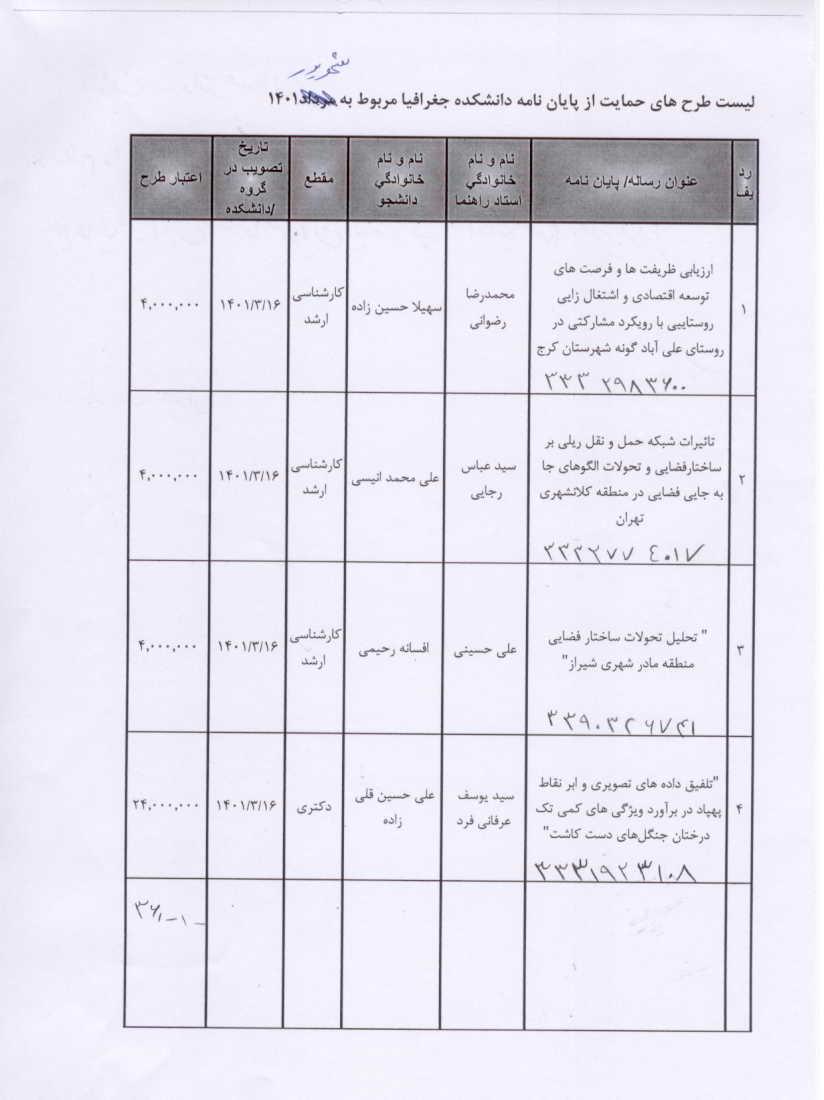 شهریور
لیست طرح های حمایت از پایان نامه دانشکده جغرافیا مربوط به مرداد۱۴۰۱
رد
یف
عنوان رساله/ پایان نامه
نام و نام
خانوادگي
استاد راهنما
نام و نام
خانوادگي
دانشجو
مقطع
تاریخ
تصویب در
گروه
/دانشکده
اعتبار طرح
۱
ارزیابی ظریفت ها و فرصت های
توسعه اقتصادی و اشتغال زایی
روستاییی با رویکرد مشارکتی در
روستای علی آباد گونه شهرستان کرج
۳۳۳ ۲۹۸۳۶۰۰
محمدرضا
رضوانی
سهیلا حسین زاده
کارشناسی
ارشد
۱۴۰۱/۳/۱۶
۴,۰۰۰,۰۰۰
۲
تاثیرات شبکه حمل و نقل ریلی بر
ساختارفضایی و تحولات الگوهای جا
به جایی فضایی در منطقه کلانشهری
تهران
۳۳۳۲۷۷ ٤۰۱۷
سید عباس
رجایی
علی محمد انیسی
کارشناسی
ارشد
۱۴۰۱/۳/۱۶
۴,۰۰۰,۰۰۰
۳
" تحلیل تحولات ساختار فضایی
منطقه مادر شهری شیراز"
علی حسینی
افسانه رحیمی
کارشناسی
ارشد
۱۴۰۱/۳/۱۶
۴,۰۰۰,۰۰۰
۴
"تلفیق داده های تصویری و ابر نقاط
پهپاد در برآورد ویژگی های کمی تک
درختان جنگل‌های دست کاشت"
۳۳۳۱۹۲۳۱۰۸
سید یوسف
عرفانی فرد
علی حسین قلی
زاده
دکتری
۱۴۰۱/۳/۱۶
۲۴,۰۰۰,۰۰۰